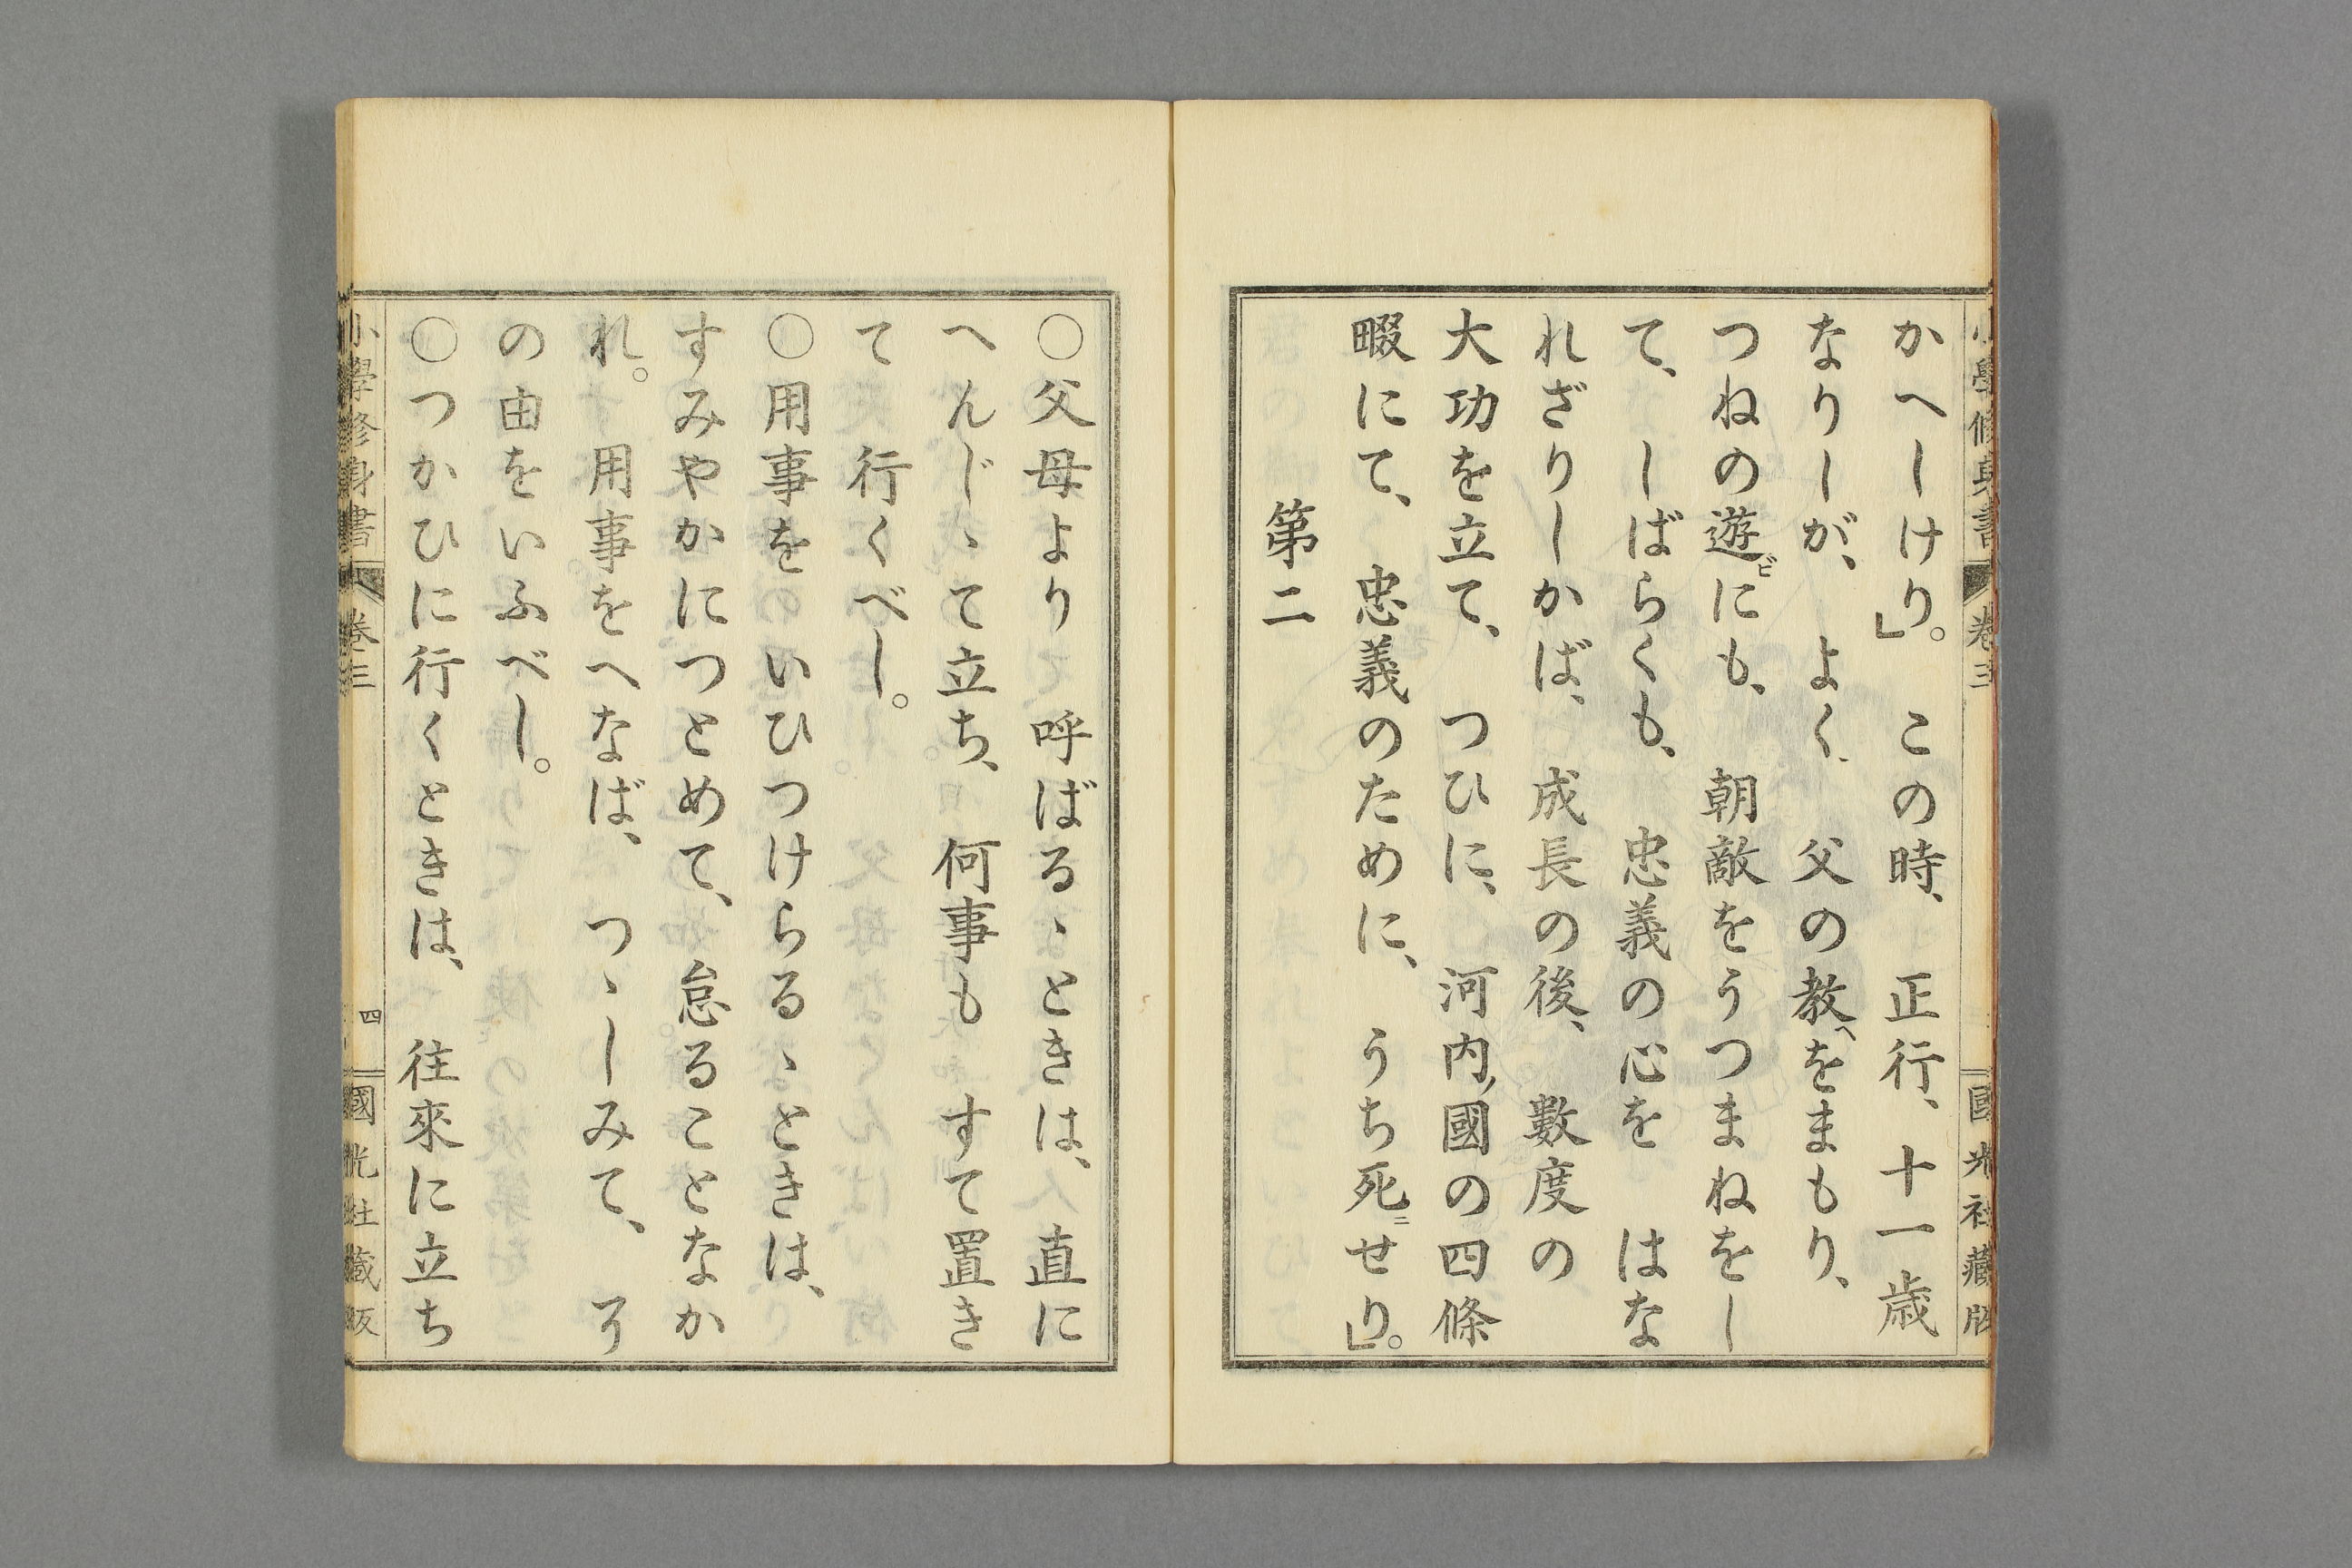 小學修身書 卷三 國光社藏版
かへしけり」。 この時、 正行、 十一歳
なりしが、 よく、 父の教ヘをまもり、
つねの遊ビにも、 朝敵をうつまねをし
て、 しばらくも、 忠義の心を はな
れざりしかば、 成長の後、 數度の
大功を立て、 つひに、 河内ノ國の四條
畷にて、 忠義のために、 うち死ニせり」。
第二
〇父母より 呼ばるヽときは、 直に
へんじヽて立ち、 何事も すて置き
て 行くべし。
〇用事を いひつけらるヽときは、
すみやかにつとめて、 怠ることなか
れ。 用事をへなば、 つヽしみて、 そ
の由をいふべし。
〇つかひに行くときは、 往來に立ち
小學修身書 卷三 四 國光社藏版